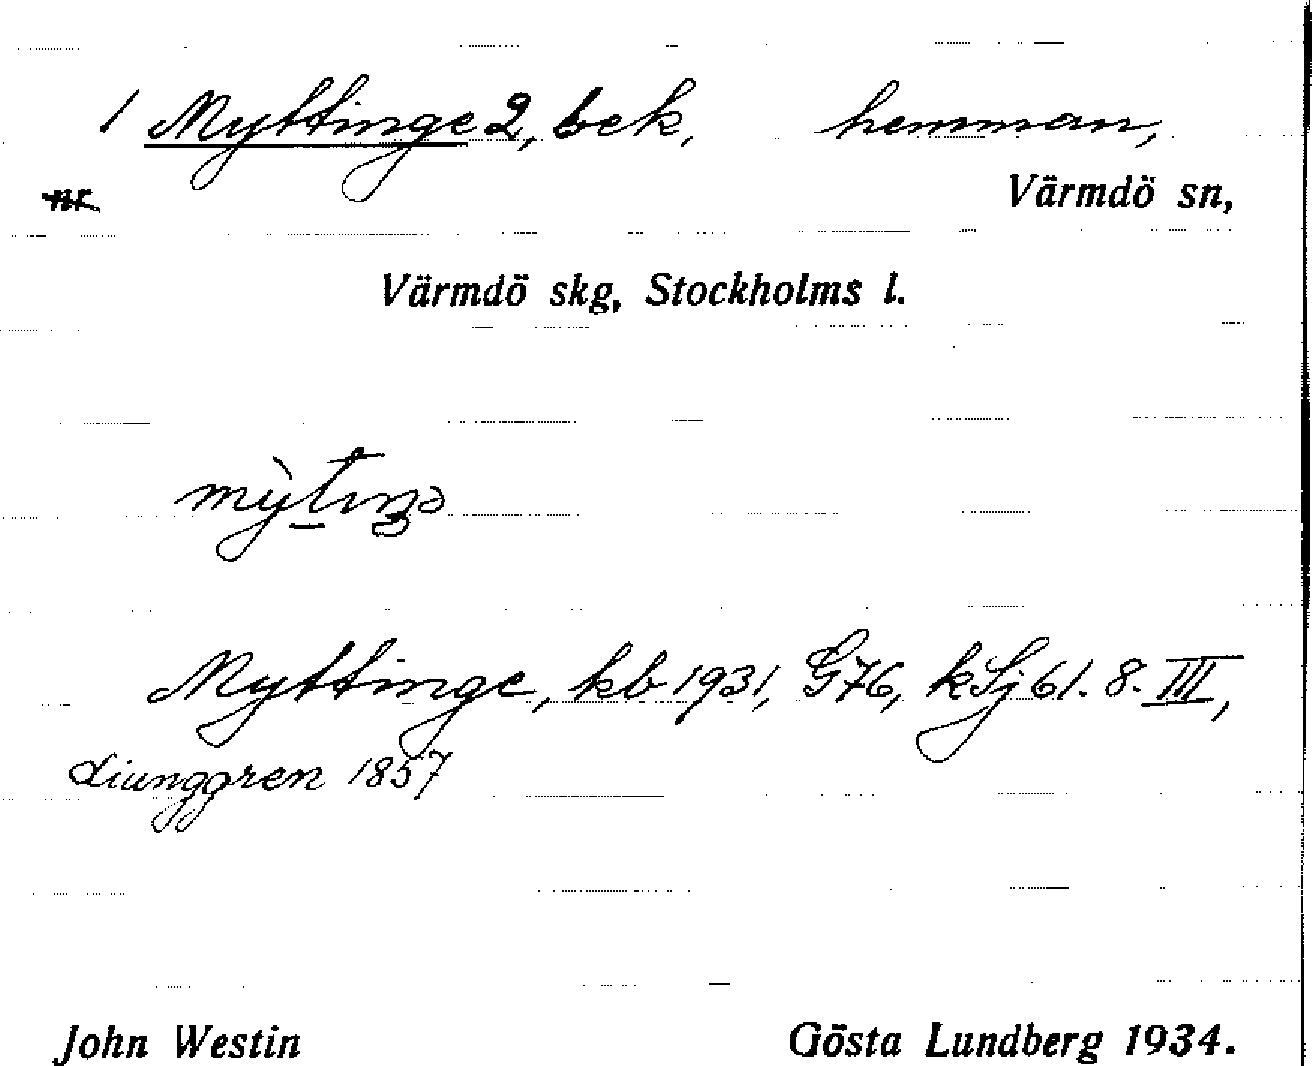 1 Myttinge 2, bek, hemman,
nr
Värmdö sn,
Värmdö skg, Stockholms l.
Myttinge, kb 1931, G76, kSj 61. 8. III,
Liunggren 1857
John Westin Gösta Lundberg 1934.